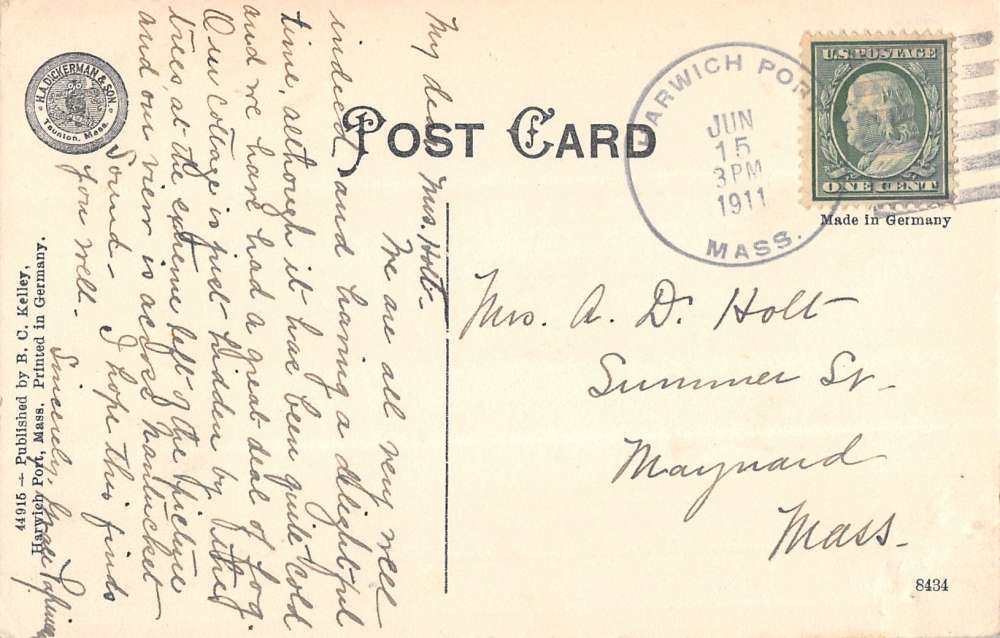 POST CARD
H.A. DICKERMAN & SON.
Taunton, Mass.
HARWICH PORT
JUN
15
3 PM
1911
MASS.
U.S. POSTAGE
ONE CENT
Made in Germany
My dear Mrs. Holt-
We are all very well
indeed and having a delightful
time, although it has been quite cold
and we have had a great deal of fog.
Our cottage is just hidden by the
trees at the extreme left of the picture
and our view is across Nantucket
Sound- I hope this finds
you well.
Sincerely,
Mrs. A. D. Holt
Summer St-
Maynard
Mass-
44915 — Published by B. C. Kelley,
Harwich Port, Mass. Printed in Germany.
8434